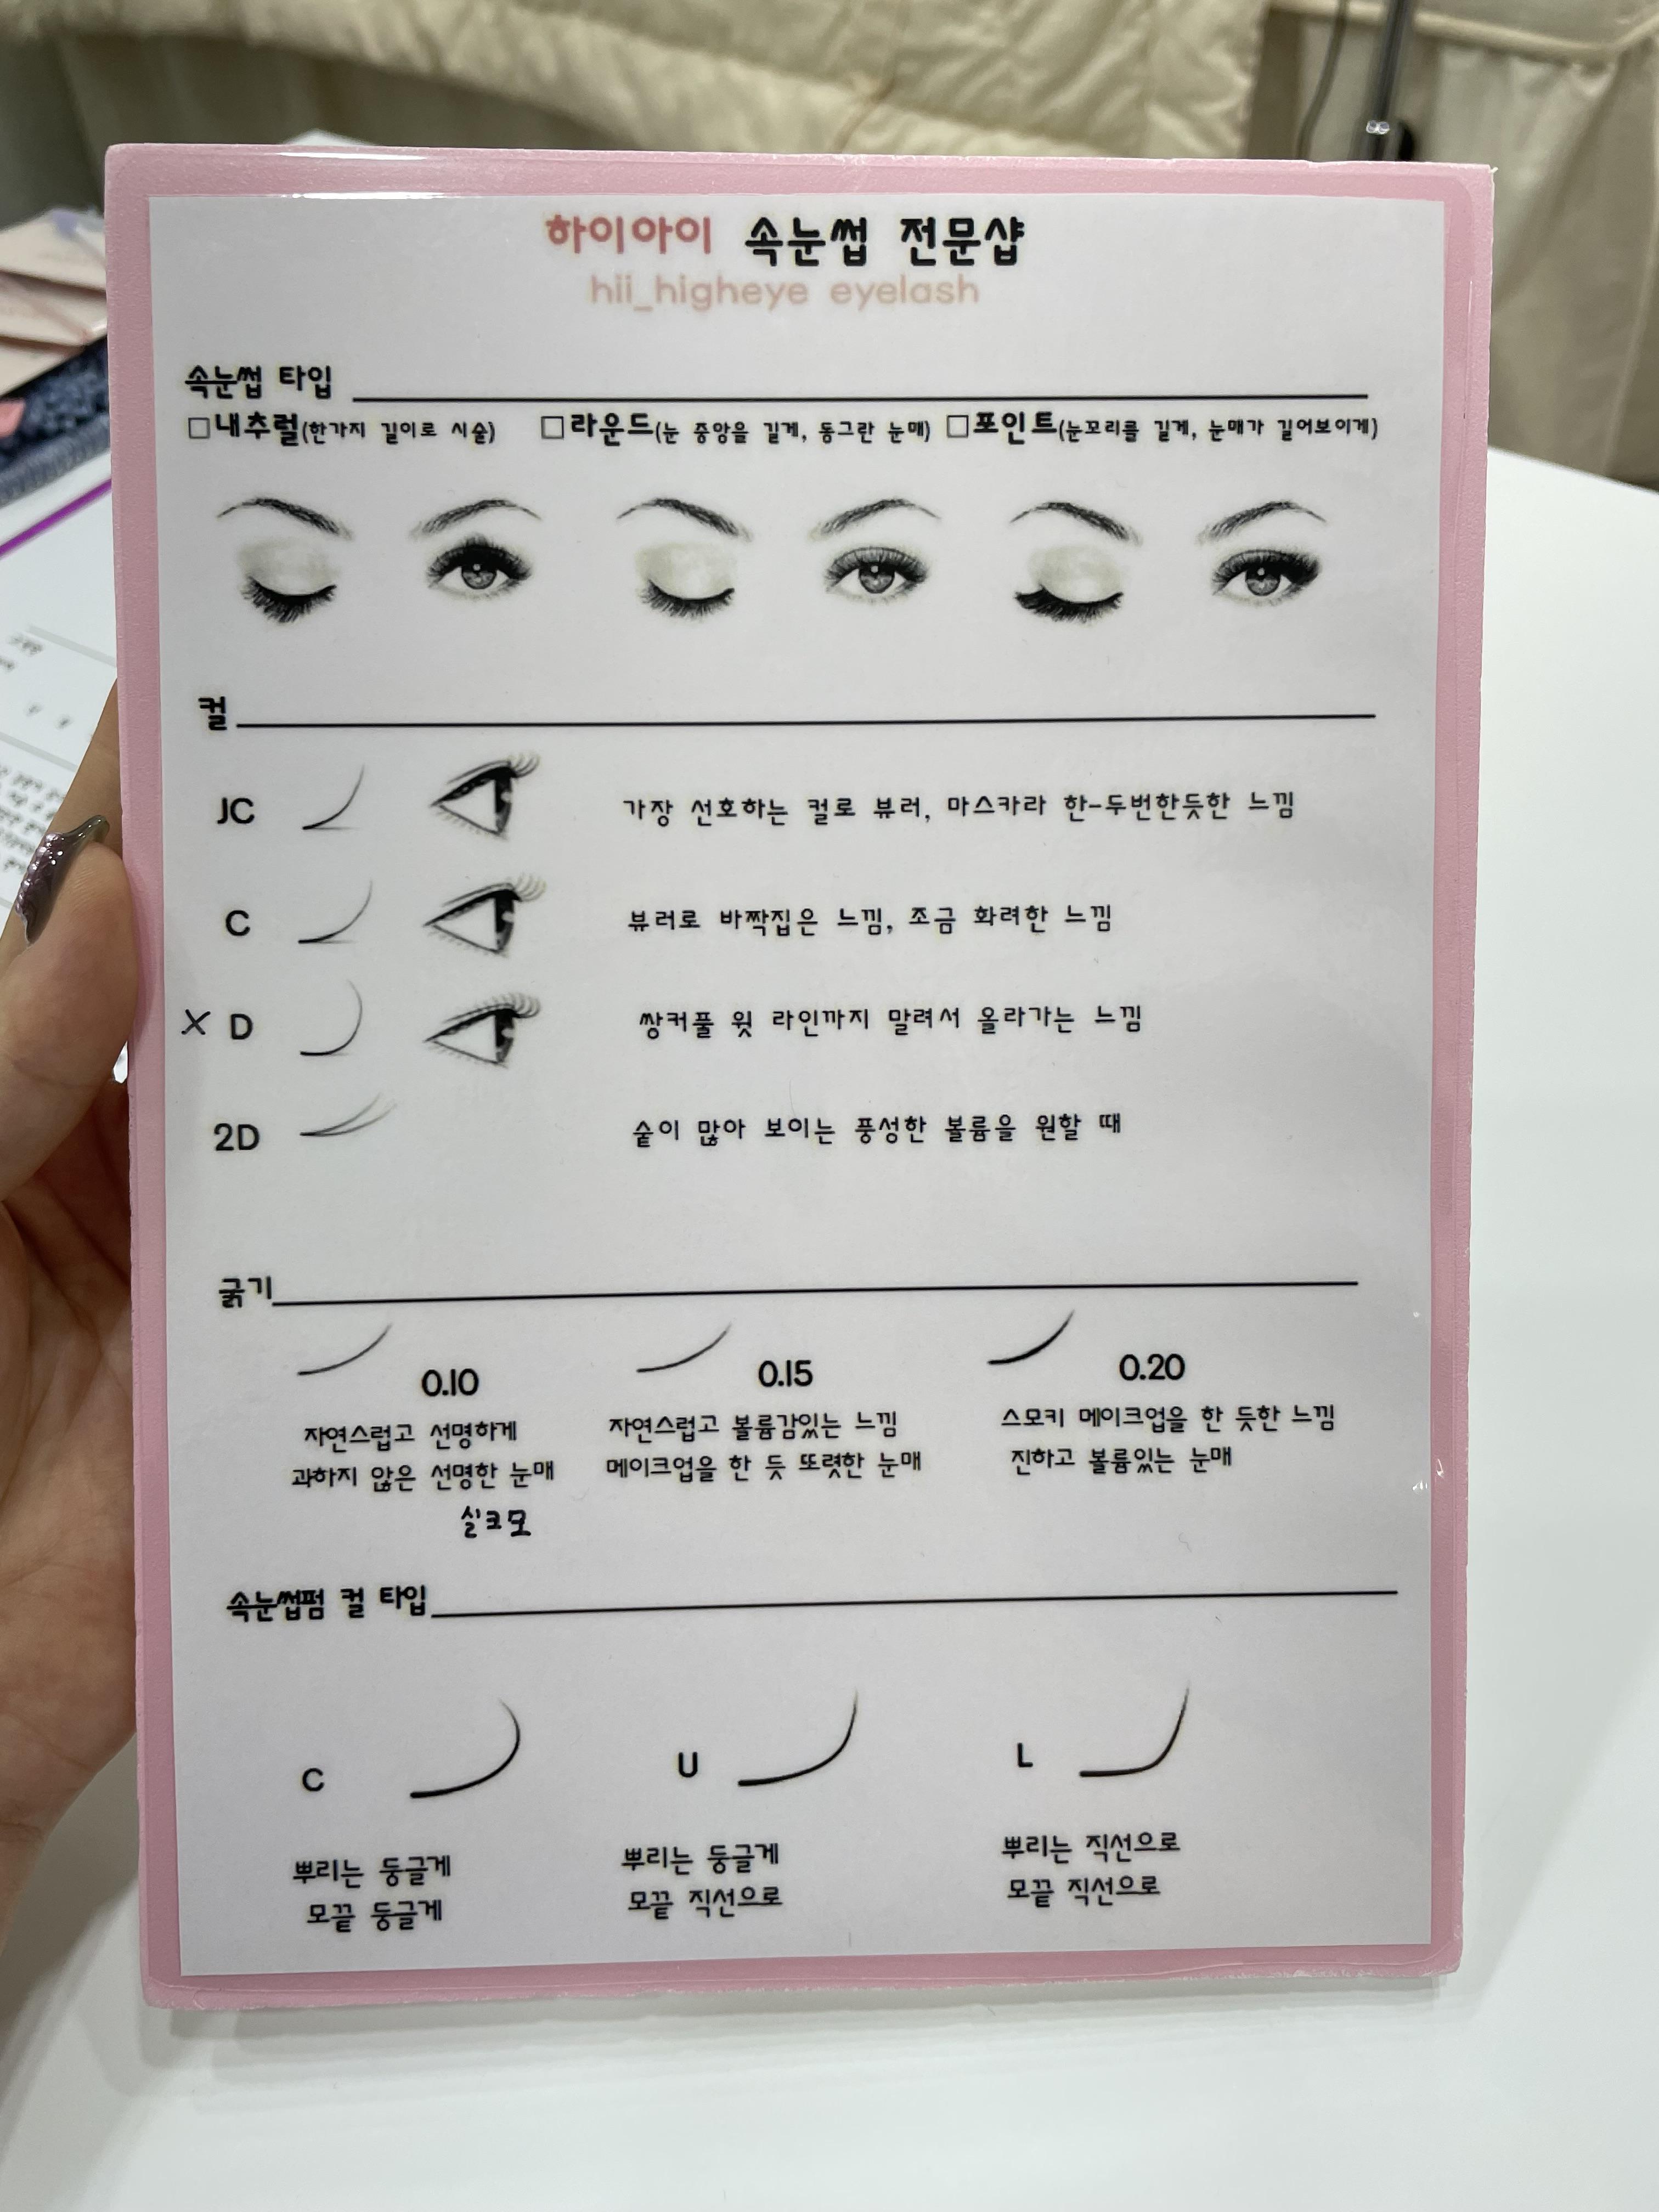 하이아이 속눈썹 전문샵
hii_higheye eyelash
속눈썹 타입
□내추럴(한가지 길이로 시술) □라운드(눈 중앙을 길게, 동그란 눈매) □포인트(눈꼬리를 길게, 눈매가 길어보이게)
컬
JC 가장 선호하는 컬로 뷰러, 마스카라 한-두번한듯한 느낌
C 뷰러로 바짝집은 느낌, 조금 화려한 느낌
X D 쌍커풀 윗 라인까지 말려서 올라가는 느낌
2D 숱이 많아 보이는 풍성한 볼륨을 원할 때
굵기
0.10 0.15 0.20
자연스럽고 선명하게 자연스럽고 볼륨감있는 느낌 스모키 메이크업을 한 듯한 느낌
과하지 않은 선명한 눈매 메이크업을 한 듯 또렷한 눈매 진하고 볼륨있는 눈매
실크모
속눈썹펌 컬 타입
C U L
뿌리는 둥글게 뿌리는 둥글게 뿌리는 직선으로
모끝 둥글게 모끝 직선으로 모끝 직선으로